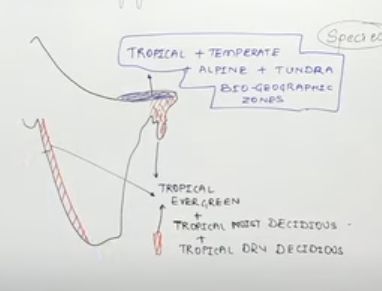 Species
TROPICAL + TEMPERATE
+ ALPINE + TUNDRA
BIO-GEOGRAPHIC
ZONES
TROPICAL
EVERGREEN
+
TROPICAL MOIST DECIDIOUS
+
TROPICAL DRY DECIDIOUS